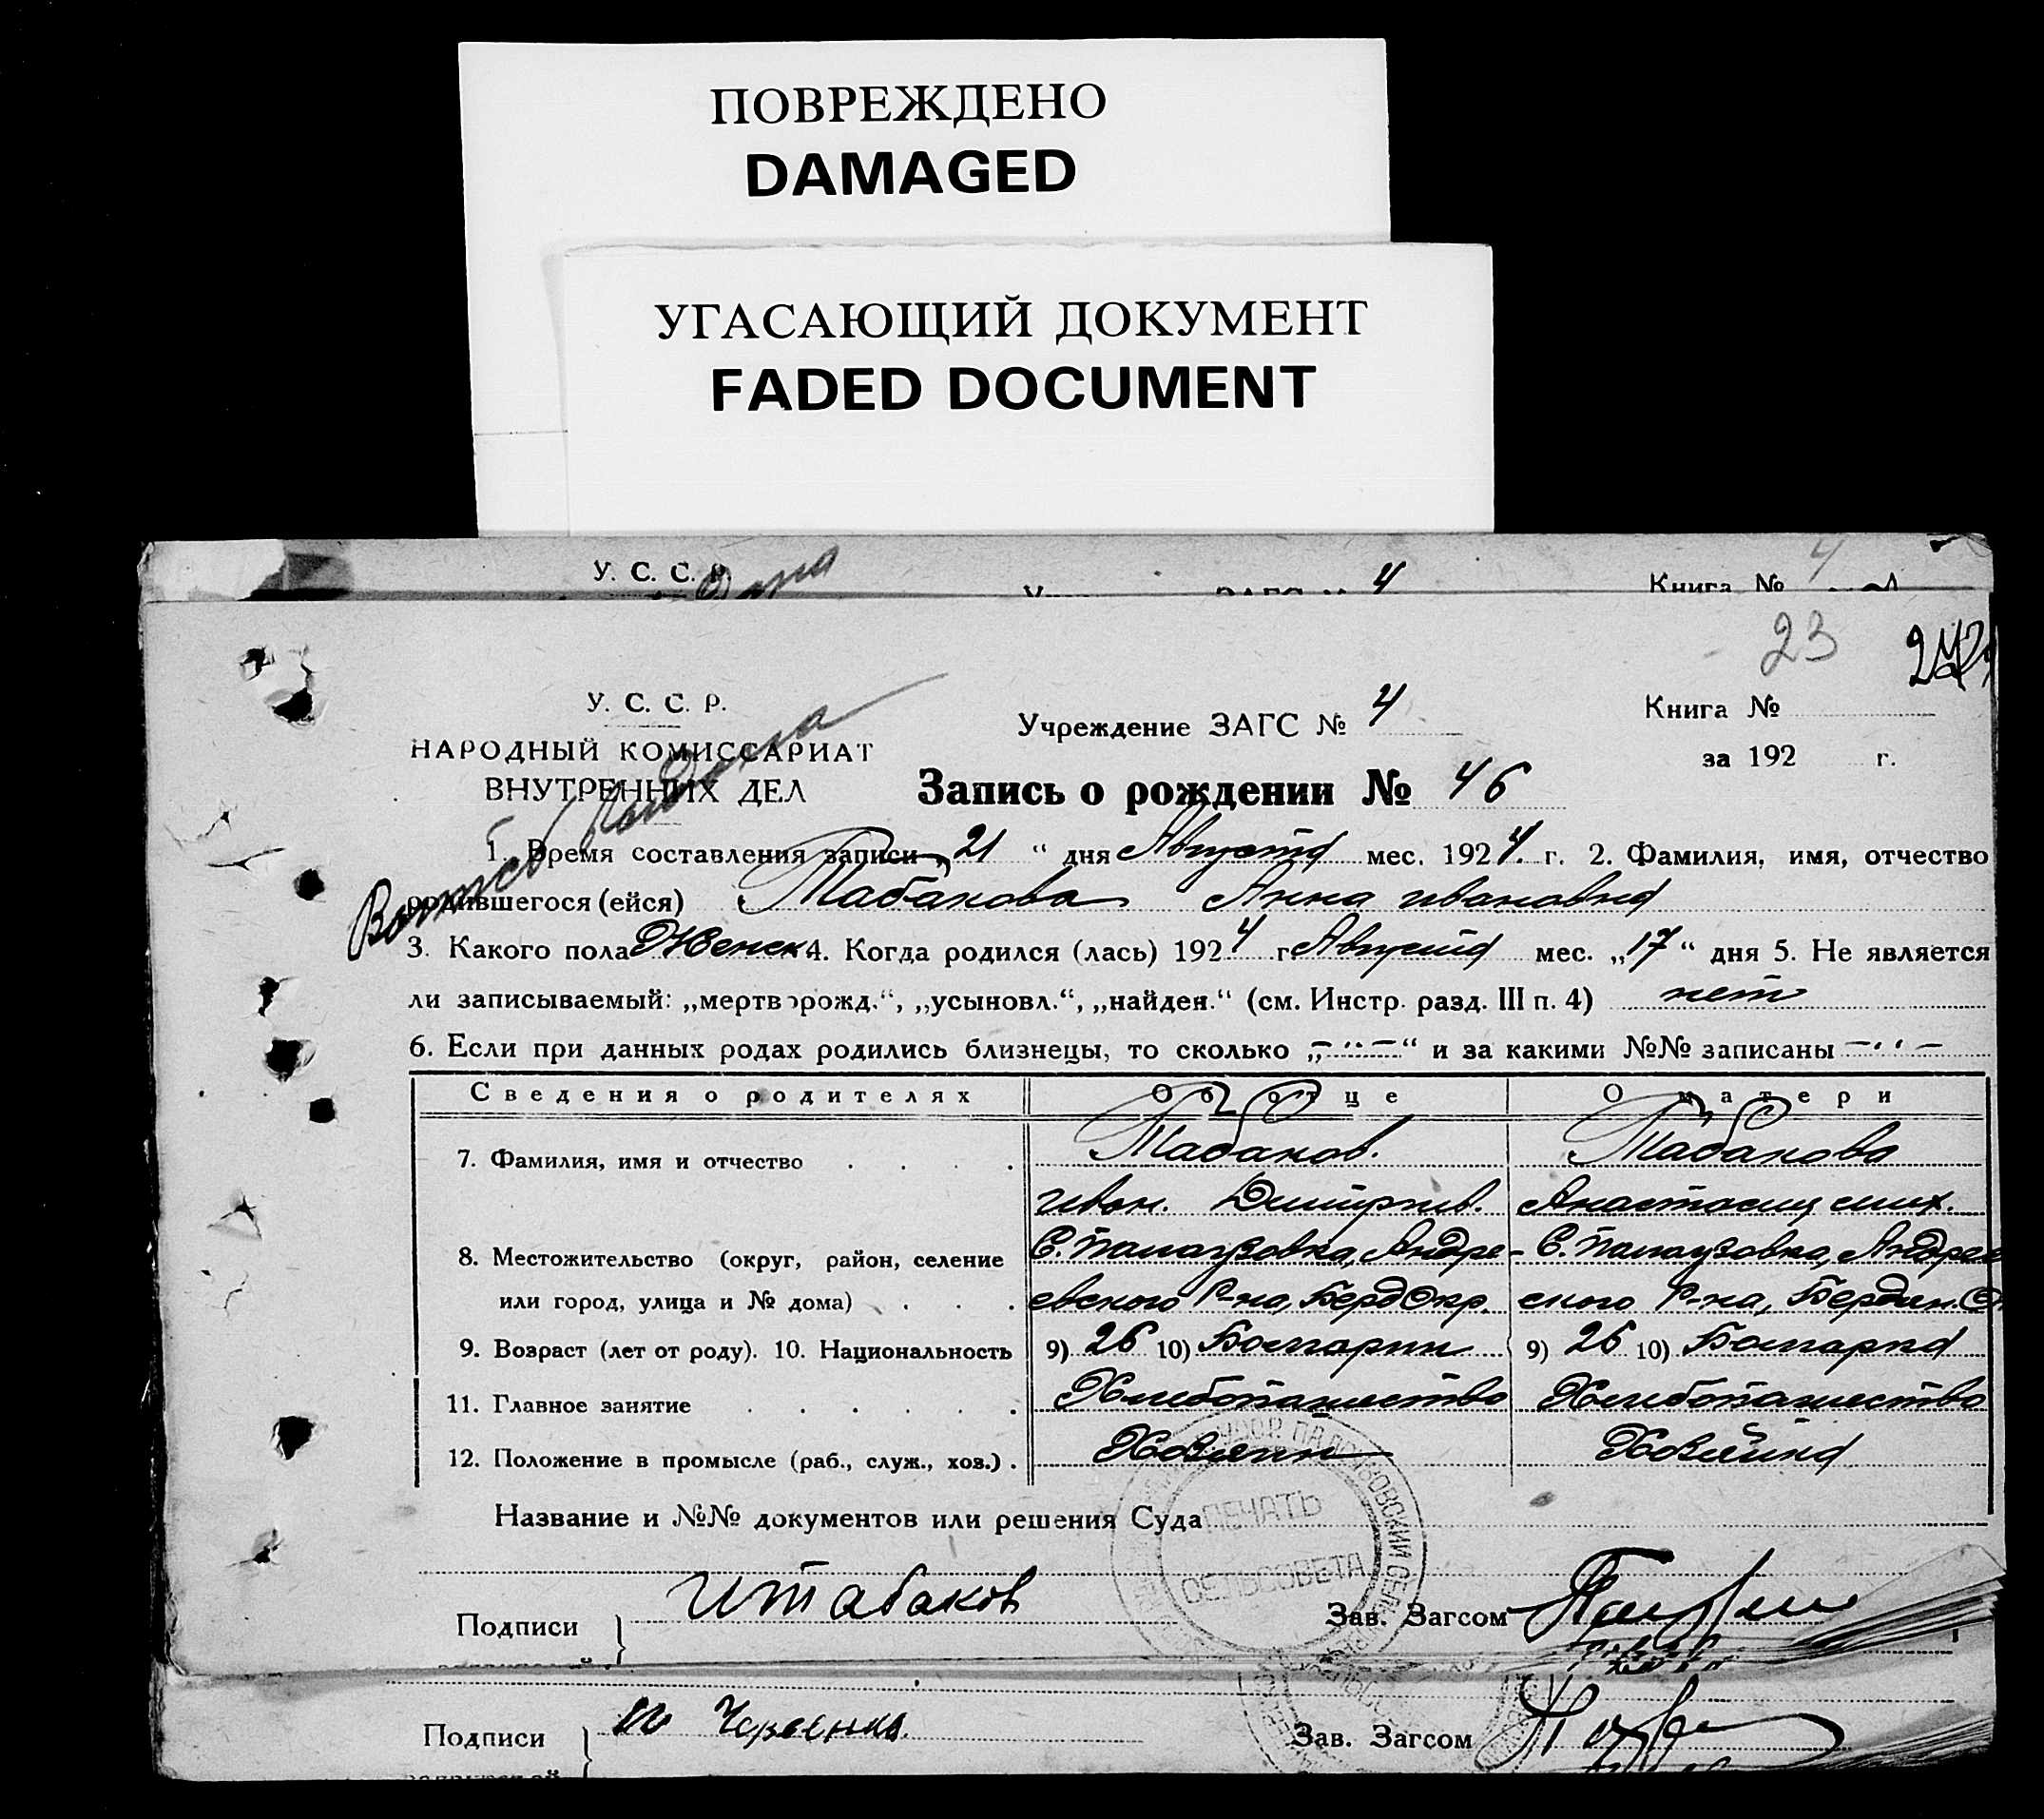 ПОВРЕЖДЕНО
DAMAGED
УГАСАЮЩИЙ ДОКУМЕНТ
FADED DOCUMENT
У. С. С. Р. 4 Книга № 4
23
У. С. С. Р. Учреждение ЗАГС № 4 Книга №
НАРОДНЫЙ КОМИССАРИАТ за 192 г.
ВНУТРЕННИХ ДЕЛ Запись о рождении № 46
1. Время составления записи „21“ дня Августа мес. 1924. г. 2. Фамилия, имя, отчество
родившегося (ейся) Табакова Анна ивановна
3. Какого пола Женск 4. Когда родился (лась) 1924 г Августа мес. „17“ дня 5. Не является
ли записываемый: „мертворожд.“, „усыновл.“, „найден.“ (см. Инстр. разд. III п. 4) нет
6. Если при данных родах родились близнецы, то сколько „-··-“ и за какими №№ записаны -··-
Сведения о родителях Об отце О матери
7. Фамилия, имя и отчество . . . . Табаков. Табакова
иван. Дмитрив. Анастасия мих.
8. Местожительство (округ, район, селение С. Палаузовка, Андре- С. Палаузовка, Андреев
или город, улица и № дома) . . . евского Р-на, БердОкр. ского Р-на, Бердян.
9. Возраст (лет от роду). 10. Национальность 9) 26 10) Болгарин 9) 26 10) Болгарка
11. Главное занятие . . . . . . Хлебопашество Хлебопашество
12. Положение в промысле (раб., служ., хоз.) . Хозяин Хозяйка
Название и №№ документов или решения Суда
ПЕЧАТЬ
СЕЛЬСОВЕТА
Подписи итабаков Зав. Загсом
Подписи Зав. Загсом